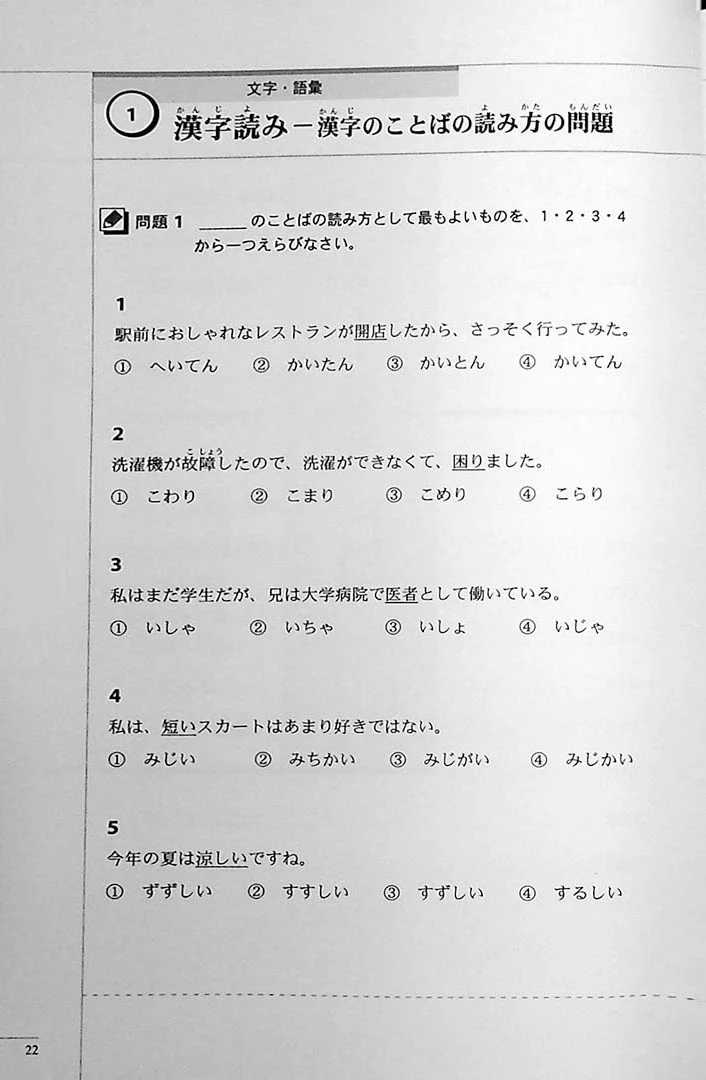 文字・語彙
1
かん じ よ かんじ よ かた もんだい
漢字読み－漢字のことばの読み方の問題
問題1 _____のことばの読み方として最もよいものを、1・2・3・4
から一つえらびなさい。
1
駅前におしゃれなレストランが開店したから、さっそく行ってみた。
① へいてん ② かいたん ③ かいとん ④ かいてん
2
こ しょう
洗濯機が故障したので、洗濯ができなくて、困りました。
① こわり ② こまり ③ こめり ④ こらり
3
私はまだ学生だが、兄は大学病院で医者として働いている。
① いしゃ ② いちゃ ③ いしょ ④ いじゃ
4
私は、短いスカートはあまり好きではない。
① みじい ② みちかい ③ みじがい ④ みじかい
5
今年の夏は涼しいですね。
① ずずしい ② すすしい ③ すずしい ④ するしい
22